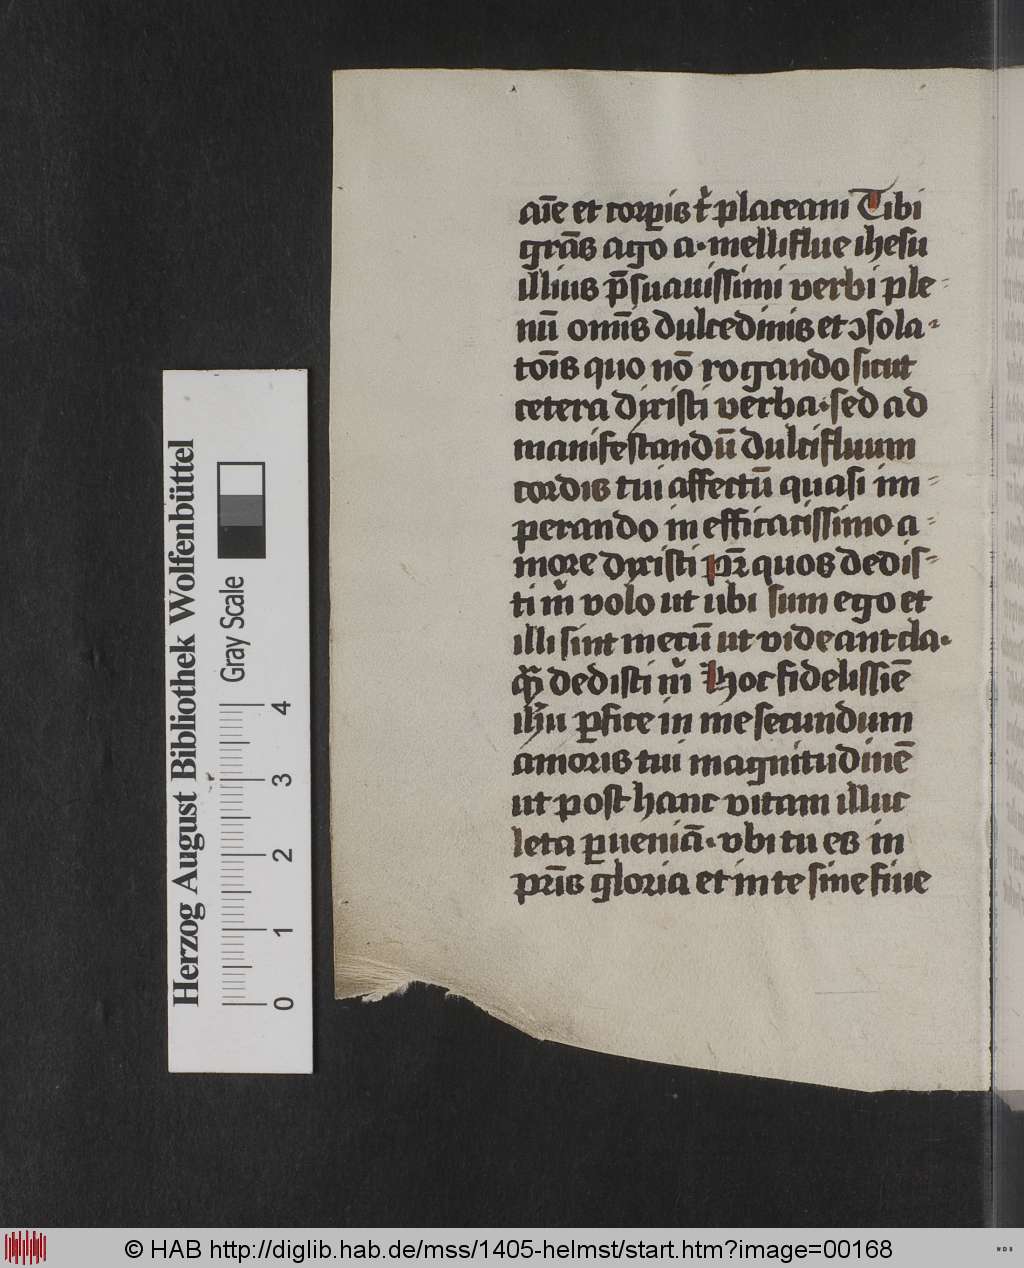 aīe et corpis t̉ placeam Tibi
grās ago a· melliflue ihesu
illius p̄suauissimi verbi ple-
nū om̄is dulcedinis et ꝯsola-
tōis quo nō rogando sicut
cetera dixisti verba· sed ad
manifestandū dulcifluum
cordis tui affectū quasi im-
perando in efficacissimo a-
more dixisti pr̄ quos dedis-
ti m̉ volo ut ubi sum ego et
illi sint mecū ut videant cla·
q̄ dedisti m̉ Hoc fidelissīe
ih̄u ꝑfice in me secundum
amoris tui magnitudinē
ut post hanc vitam illuc
leta ꝑueniā· vbi tu es in
pr̄is gloria et in te sine fine
Herzog August Bibliothek Wolfenbüttel
Gray Scale
0 1 2 3 4
© HAB http://diglib.hab.de/mss/1405-helmst/start.htm?image=00168